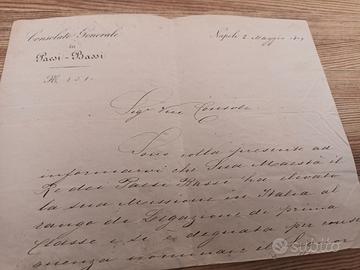 Consolato Generale
Napoli 2 Maggio
in
Paesi-Bassi
Sigr. Vice Console
Sono colla presente ad
informarvi che Sua Maestà il
Re dei Paesi Bassi ha elevato
la sua Missione in Italia al
rango di Legazione di prima
Classe e si è degnata per conse
guenza nominare il
subito